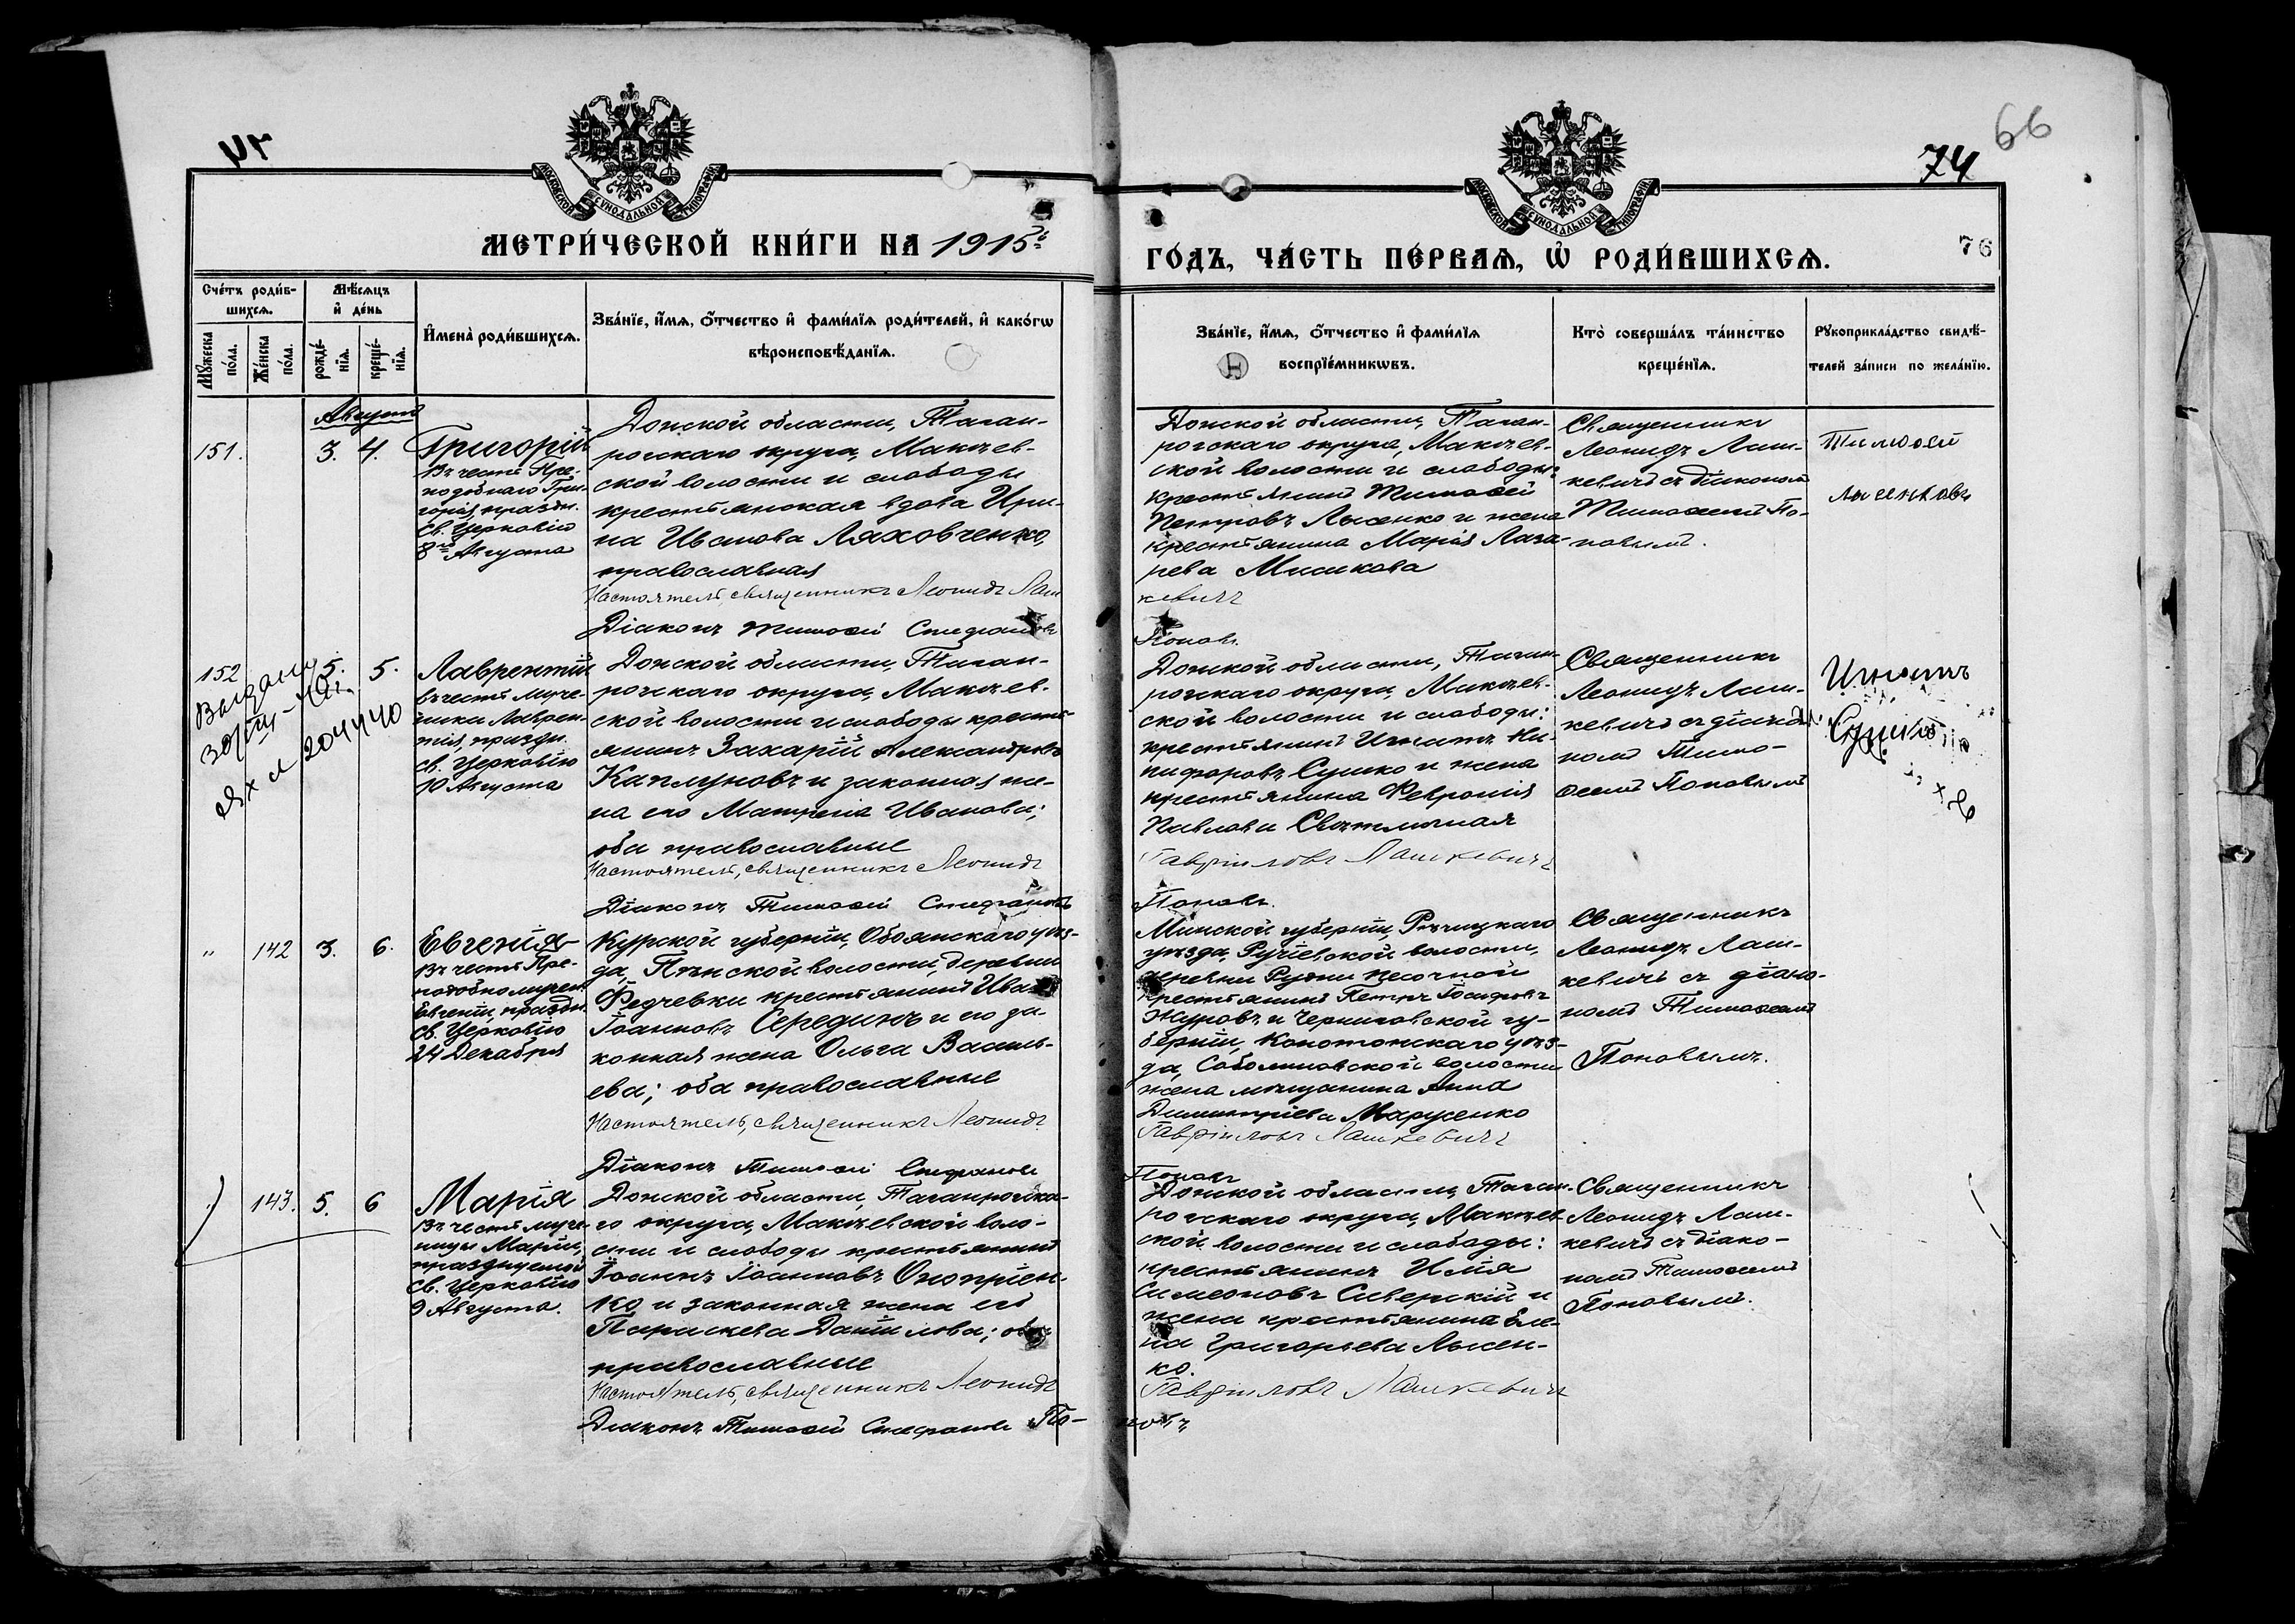 66
74
76
МОСКОВСКОЙ СѴНОДАЛЬНОЙ ТИПОГРАФІИ
МОСКОВСКОЙ СѴНОДАЛЬНОЙ ТИПОГРАФІИ
МЕТРИ́ЧЕСКОЙ КНИ́ГИ НА 1915й
ГО́ДЪ, ЧА́СТЬ ПЕ́РВАѦ, Ѿ РОДИ́ВШИХСѦ.
Сче́тъ роди́в-
шихсѧ.
Мѣ́сѧцъ
и҆ де́нь
Мꙋ́жеска
по́ла.
Же́нска
по́ла.
рожде́-
нїѧ.
креще́-
нїѧ.
И҆мена̀ роди́вшихсѧ.
Зва́нїе, и҆́мѧ, ѻ҆́тчество и҆ фами́лїѧ роди́телей, и҆ како́гѡ
вѣроисповѣ́данїѧ.
Зва́нїе, и҆́мѧ, ѻ҆́тчество и҆ фами́лїѧ
воспрїе́мникѡвъ.
Кто̀ соверша́лъ та́инство
креще́нїѧ.
Рꙋкоприкла́дство свидѣ́-
телей за́писи по жела́нїю.
Августъ
151.
3. 4.
Григорій
Въ честь Пре-
подобнаго Гри-
горія, праздн.
Св. Церковію
8го Августа
Донской области, Таган-
рогскаго округа, Макѣев-
ской волости и слободы
крестьянская вдова Ири-
на Иванова Ляховченко,
православная
Настоятель, священникъ Леонидъ Лаш
кевичъ
Діаконъ Тимоѳей Стефановъ
Поповъ.
Донской области, Таган-
рогскаго округа, Макѣев-
ской волости и слободы:
крестьянинъ Тимоѳей
Петровъ Лысенко и жена
крестьянина Марія Лаза-
рева Мисикова
Священникъ
Леонидъ Лаш-
кевичъ съ діакономъ
Тимоѳеемъ По-
повымъ.
Тимоѳей
Лысенковъ
152
5. 5.
Выданы
204440
Лаврентій
въ честь муче-
ника Лаврен-
тія, праздн.
св. Церковію
10 Августа
Донской области, Таган-
рогскаго округа, Макѣев-
ской волости и слободы кресть-
янинъ Захарій Александровъ
Каплуновъ и законная же-
на его Матрона Иванова;
оба православные
Настоятель, священникъ Леонидъ
Гавріиловъ Лашкевичъ
Діаконъ Тимоѳей Стефановъ
Поповъ.
Донской области, Таган-
рогскаго округа, Макѣев-
ской волости и слободы:
крестьянинъ Игнатъ Ни-
кифоровъ Сушко и жена
крестьянина Февронія
Павлова Свѣтличная
Священникъ
Леонидъ Лаш-
кевичъ съ діако-
номъ Тимо-
ѳеемъ Поповымъ
Игнатъ
Сушко
" 142 3. 6.
Евгенія
Въ честь Пре-
подобномучен.
Евгеніи, праздн.
Св. Церковію
24 Декабря
Курской губерніи, Обоянскаго уѣз-
да, Пѣнской волости, деревни
Федчевки крестьянинъ Иванъ
Іоанновъ Серединъ и его за-
конная жена Ольга Василь-
ева; оба православные
Настоятель, священникъ Леонидъ
Гавріиловъ Лашкевичъ
Діаконъ Тимоѳей Стефановъ
Поповъ
Минской губерніи, Рѣчицкаго
уѣзда, Ручіевской волости,
деревни Рудни Песочной
крестьянинъ Петръ Іосифовъ
Журовъ и Черниговской гу-
берніи, Конотопскаго уѣз-
да, волости
жена мѣщанина Анна
Димитріева Марусенко
Священникъ
Леонидъ Лаш-
кевичъ съ діако-
номъ Тимоѳеемъ
Поповымъ.
143. 5. 6
Марія
Въ честь муче-
ницы Маріи,
празднуемой
Св. Церковію
9 Августа.
Донской области, Таганрогска-
го округа, Макѣевской воло-
сти и слободы крестьянинъ
Іоаннъ Іоанновъ Оноприен-
ко и законная жена его
Параскева Даніилова; оба
православные
Настоятель, священникъ Леонидъ
Гавріиловъ Лашкевичъ
Діаконъ Тимоѳей Стефановъ По-
повъ
Донской области, Таган-
рогскаго округа, Макѣев-
ской волости и слободы:
крестьянинъ Илія
Симеоновъ Сиверскій и
жена крестьянина Еле-
на Григорьева Лысен-
ко.
Священникъ
Леонидъ Лаш-
кевичъ съ діако-
номъ Тимоѳеемъ
Поповымъ.